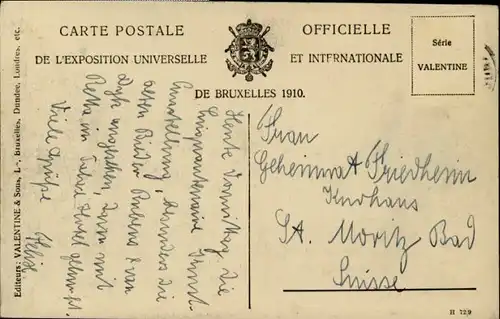 CARTE POSTALE
OFFICIELLE
DE L'EXPOSITION UNIVERSELLE
ET INTERNATIONALE
DE BRUXELLES 1910.
Série
VALENTINE
Editeurs: VALENTINE & Sons, Ld - Bruxelles, Dundee, Londres, etc.
Heute Vormittag die
Cinquantenaire Kunst-
Ausstellung, besonders die
alten Bilder Rubens & van
Dyk angesehen, dann mit
im Hotel
Viele Grüsse
Felix
Frau
Geheimrat Friedheim
Kurhaus
St. Moritz Bad
Suisse
H 729